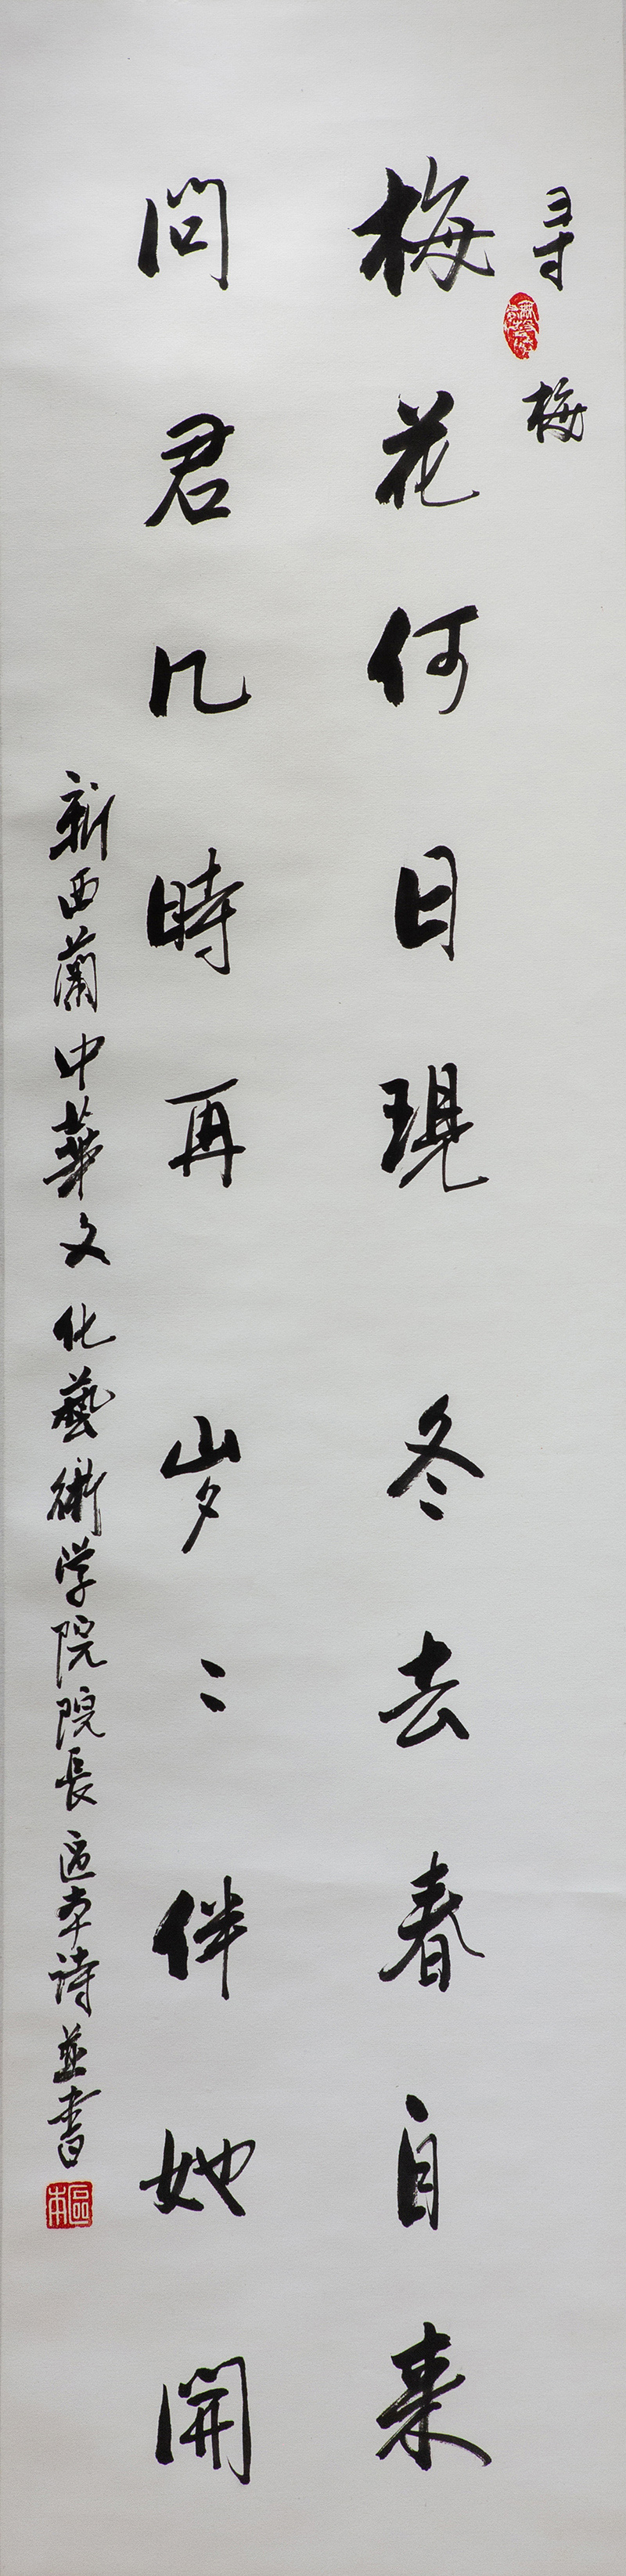 寻梅
梅花何日現冬去春自来
問君几時再岁〻伴她開
新西蘭中華文化藝術学院院長區本詩並書
區本